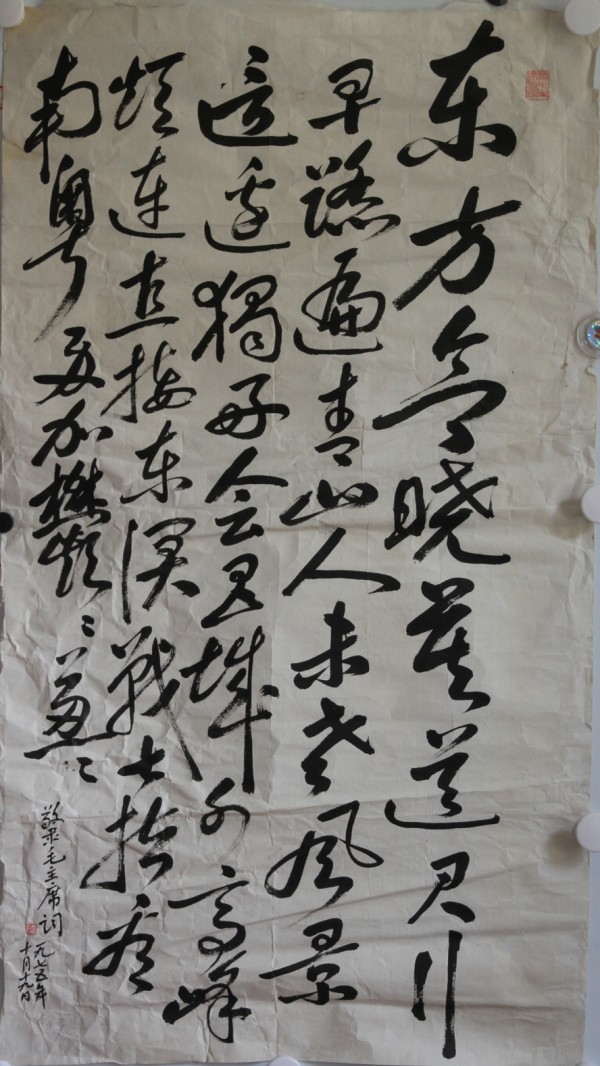 东方欲晓莫道君行
早踏遍青山人未老风景
這边獨好会昌城外高峰
颠连直接东溟戰士指看
南粤更加郁々葱々
敬录毛主席词 一九七五年
十月十九日